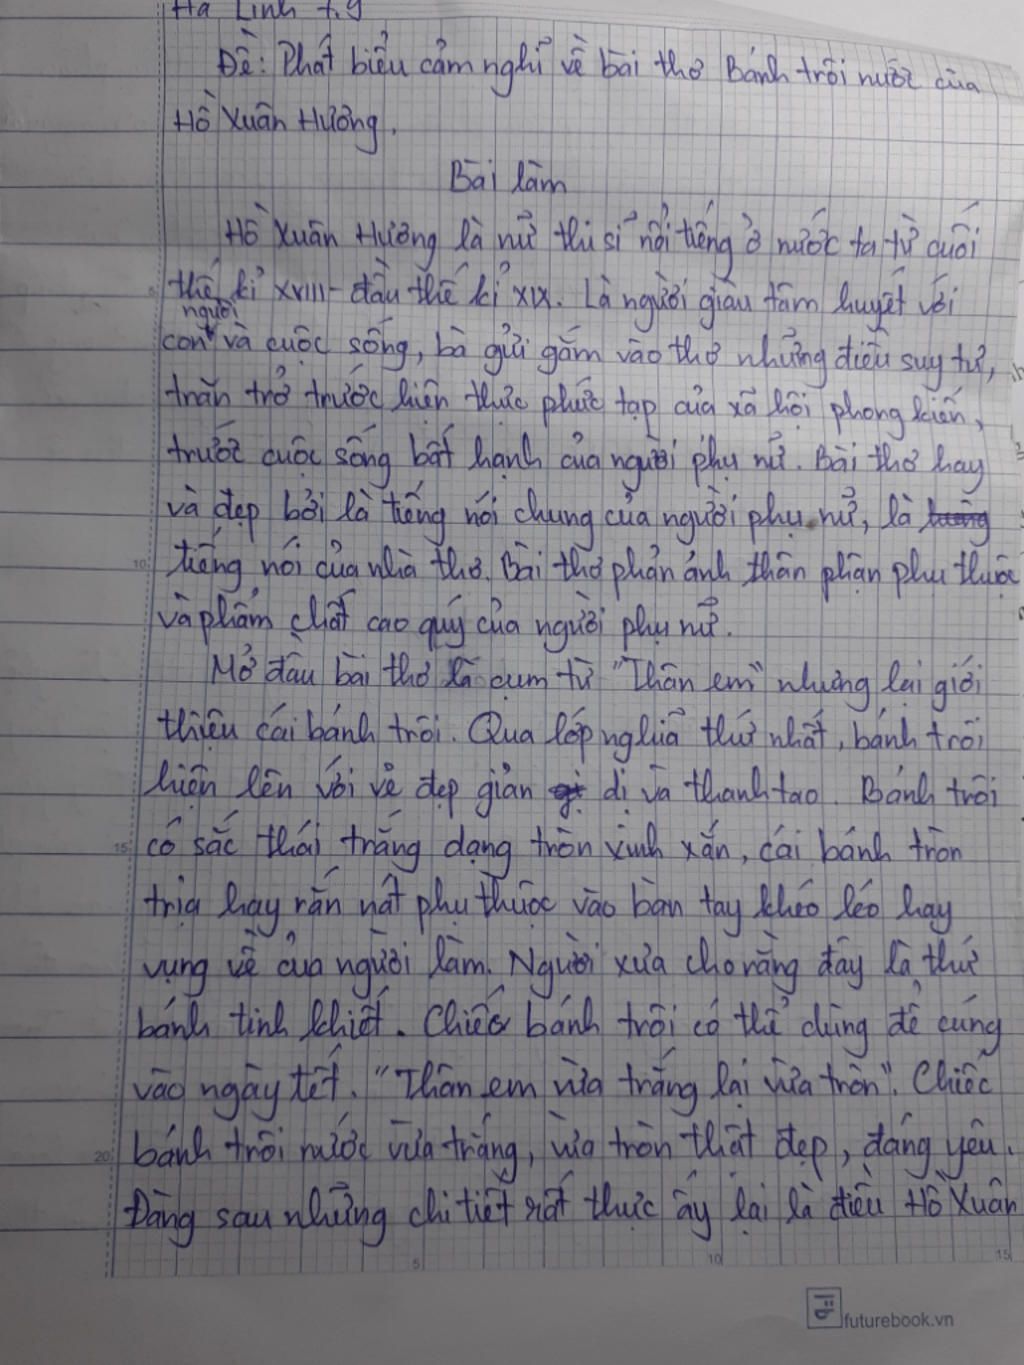 Hà Linh 7.9
Đề: Phát biểu cảm nghĩ về bài thơ Bánh trôi nước của
Hồ Xuân Hương.
Bài làm
Hồ Xuân Hương là nữ thi sĩ nổi tiếng ở nước ta từ cuối
thế kỉ XVIII - đầu thế kỉ XIX. Là người giàu tâm huyết với
con người và cuộc sống, bà gửi gắm vào thơ những điều suy tư,
trăn trở trước hiện thực phức tạp của xã hội phong kiến,
trước cuộc sống bất hạnh của người phụ nữ. Bài thơ hay
và đẹp bởi là tiếng nói chung của người phụ nữ, là
10 tiếng nói của nhà thơ. Bài thơ phản ánh thân phận phụ thuộc
và phẩm chất cao quý của người phụ nữ.
Mở đầu bài thơ là cụm từ "Thân em" nhưng lại giới
thiệu cái bánh trôi. Qua lớp nghĩa thứ nhất, bánh trôi
hiện lên với vẻ đẹp giản dị và thanh tao. Bánh trôi
15 có sắc thái trắng dạng tròn xinh xắn, cái bánh tròn
trịa hay rắn nát phụ thuộc vào bàn tay khéo léo hay
vụng về của người làm. Người xưa cho rằng đây là thứ
bánh tinh khiết. Chiếc bánh trôi có thể dùng để cúng
vào ngày tết. "Thân em vừa trắng lại vừa tròn". Chiếc
20 bánh trôi nước vừa trắng, vừa tròn thật đẹp, đáng yêu.
Đằng sau những chi tiết rất thực ấy lại là điều Hồ Xuân
5 10 15
futurebook.vn